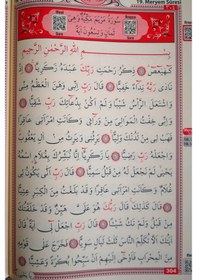 19. Meryem Sûresi
سُورَةُ مَرْيَمَ مَكِّيَّةٌ وَهِيَ
ثَمَانٍ وَتِسْعُونَ آيَةً
بِسْمِ اللّٰهِ الرَّحْمٰنِ الرَّحِيمِ
كٓهٰيٰعٓصٓ ۝ ذِكْرُ رَحْمَتِ رَبِّكَ عَبْدَهُ زَكَرِيَّا ۝ اِذْ
نَادٰى رَبَّهُ نِدَٓاءً خَفِيًّا ۝ قَالَ رَبِّ اِنِّي وَهَنَ الْعَظْمُ مِنِّي
وَاشْتَعَلَ الرَّأْسُ شَيْبًا وَلَمْ اَكُنْ بِدُعَٓائِكَ رَبِّ شَقِيًّا ۝
وَاِنِّي خِفْتُ الْمَوَالِيَ مِنْ وَرَٓائِي وَكَانَتِ امْرَاَتِي عَاقِرًا
فَهَبْ لِي مِنْ لَدُنْكَ وَلِيًّا ۝ يَرِثُنِي وَيَرِثُ مِنْ اٰلِ يَعْقُوبَ
وَاجْعَلْهُ رَبِّ رَضِيًّا ۝ يَا زَكَرِيَّٓا اِنَّا نُبَشِّرُكَ بِغُلَامٍ اسْمُهُ
يَحْيٰى لَمْ نَجْعَلْ لَهُ مِنْ قَبْلُ سَمِيًّا ۝ قَالَ رَبِّ اَنّٰى يَكُونُ
لِي غُلَامٌ وَكَانَتِ امْرَاَتِي عَاقِرًا وَقَدْ بَلَغْتُ مِنَ الْكِبَرِ
عِتِيًّا ۝ قَالَ كَذٰلِكَ قَالَ رَبُّكَ هُوَ عَلَيَّ هَيِّنٌ وَقَدْ خَلَقْتُكَ
مِنْ قَبْلُ وَلَمْ تَكُ شَيْـًٔا ۝ قَالَ رَبِّ اجْعَلْ لِٓي اٰيَةً قَالَ
اٰيَتُكَ اَلَّا تُكَلِّمَ النَّاسَ ثَلٰثَ لَيَالٍ سَوِيًّا ۝ فَخَرَجَ عَلٰى قَوْمِهِ
مِنَ الْمِحْرَابِ فَاَوْحٰٓى اِلَيْهِمْ اَنْ سَبِّحُوا بُكْرَةً وَعَشِيًّا ۝
304